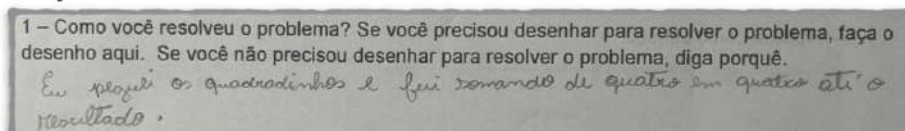 1 – Como você resolveu o problema? Se você precisou desenhar para resolver o problema, faça o
desenho aqui. Se você não precisou desenhar para resolver o problema, diga porquê.
Eu peguei os quadradinhos e fui somando de quatro em quatro até o
resultado.